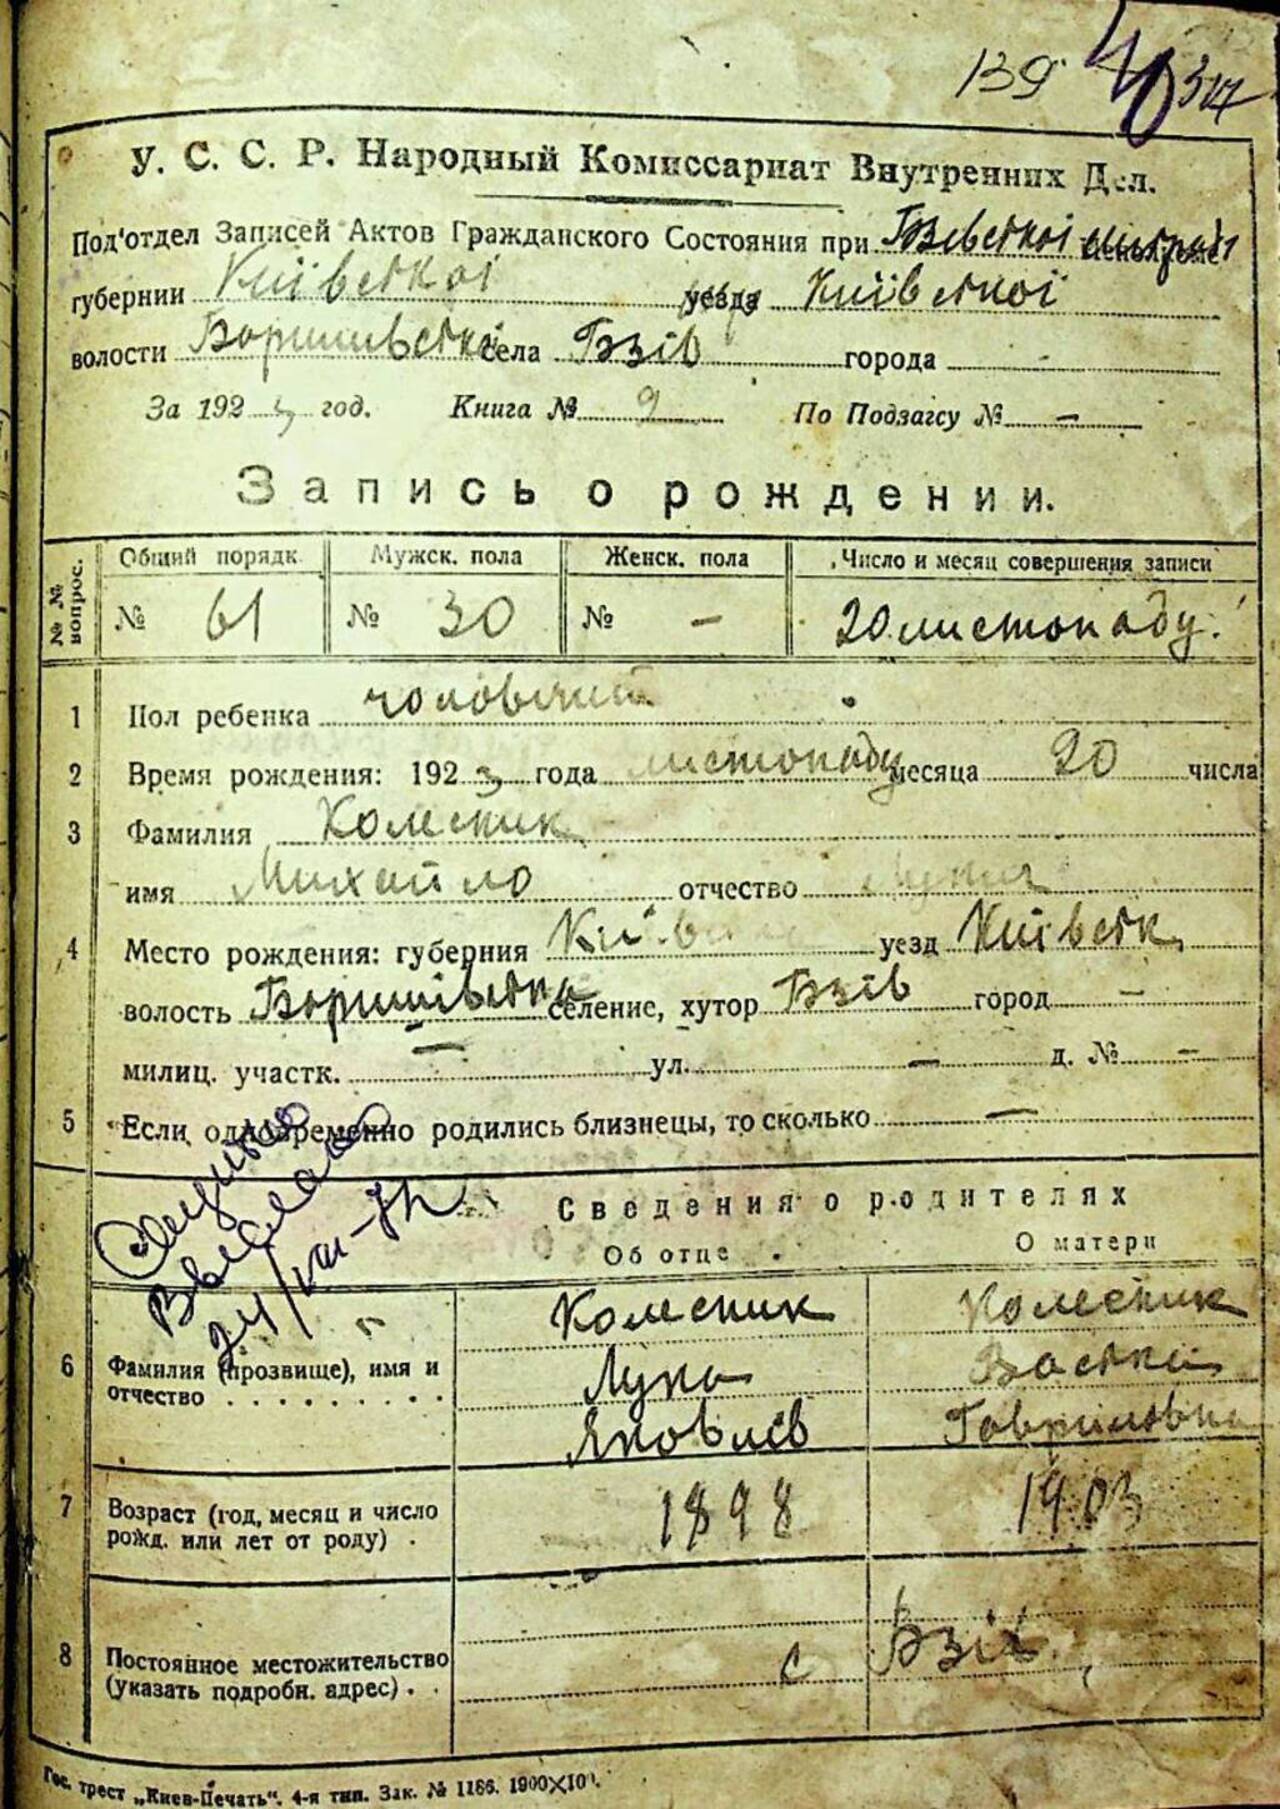 139 40 317
У. С. С. Р. Народный Комиссариат Внутренних Дел.
Под'отдел Записей Актов Гражданского Состояния при Бзівської
губернии Київської уезда Київської
волости Баришівської села Бзів города -
За 1923 год. Книга № 9 По Подзагсу № -
Запись о рождении.
№№ вопрос. Общий порядк. Мужск. пола Женск. пола Число и месяц совершения записи
№ 61 № 30 № - 20 листопаду
1 Пол ребенка чоловічий
2 Время рождения: 1923 года листопаду месяца 20 числа
3 Фамилия Колесник
имя Михайло отчество
4 Место рождения: губерния уезд Київськ
волость Баришівська селение, хутор Бзів город -
милиц. участк. - ул. - д. № -
5 Если одновременно родились близнецы, то сколько -
Выслано
24/VIII-72
Сведения о родителях
Об отце О матери
6 Фамилия (прозвище), имя и отчество Колесник Колесник
Лука
Яковлєв Гавриловна
7 Возраст (год, месяц и число рожд. или лет от роду) 1898 1903
8 Постоянное местожительство (указать подробн. адрес) с Бзів
Гос. трест „Киев-Печать“. 4-я тип. Зак. № 1186.